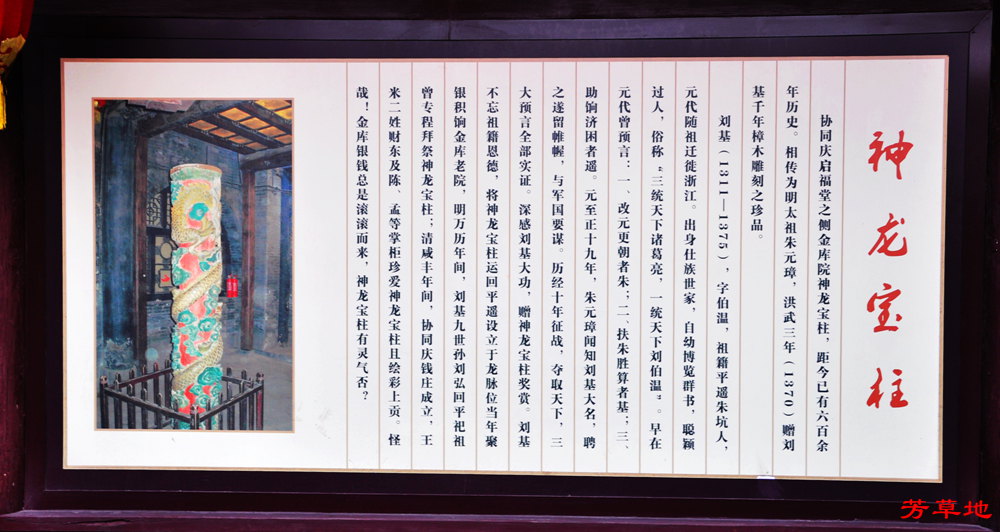 神龙宝柱
协同庆启福堂之侧金库院神龙宝柱，距今已有六百余
年历史。相传为明太祖朱元璋，洪武三年（1370）赠刘
基千年樟木雕刻之珍品。
刘基（1311—1375），字伯温，祖籍平遥朱坑人，
元代随祖迁徙浙江。出身仕族世家，自幼博览群书，聪颖
过人，俗称“三统天下诸葛亮，一统天下刘伯温”。早在
元代曾预言：一、改元更朝者朱；二、扶朱胜算者基；三、
助饷济困者遥。元至正十九年，朱元璋闻知刘基大名，聘
之遂留帷幄，与军国要谋。历经十年征战，夺取天下，三
大预言全部实证。深感刘基大功，赠神龙宝柱奖赏。刘基
不忘祖籍恩德，将神龙宝柱运回平遥设立于龙脉位当年聚
银积饷金库老院，明万历年间，刘基九世孙刘弘回平祀祖
曾专程拜祭神龙宝柱；清咸丰年间，协同庆钱庄成立，王
米二姓财东及陈、孟等掌柜珍爱神龙宝柱且绘彩上贡。怪
哉！金库银钱总是滚滚而来，神龙宝柱有灵气否？
芳草地